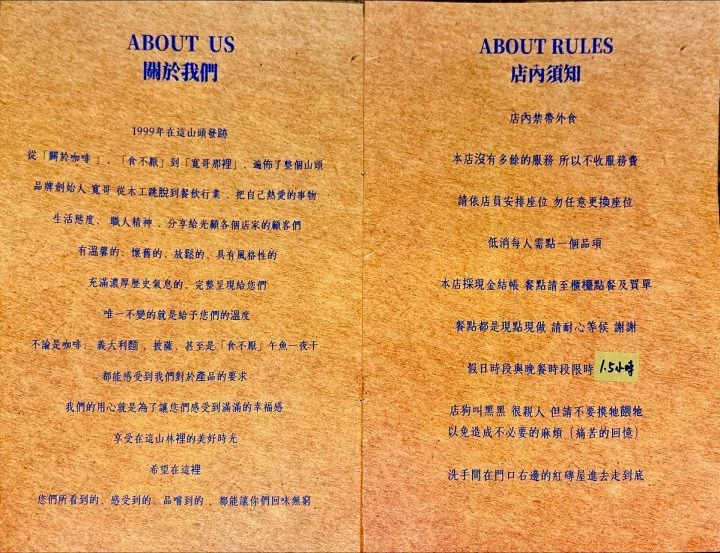 ABOUT US
關於我們
1999年在這山頭發跡
從「關於咖啡」、「食不厭」到「寬哥那裡」、遍佈了整個山頭
品牌創始人 寬哥 從木工跳脫到餐飲行業、把自己熱愛的事物
生活態度、職人精神、分享給光顧各個店家的顧客們
有溫馨的、懷舊的、放鬆的、具有風格性的
充滿濃厚歷史氣息的、完整呈現給您們
唯一不變的就是給予您們的溫度
不論是咖啡、義大利麵、披薩、甚至是「食不厭」午魚一夜干
都能感受到我們對於產品的要求
我們的用心就是為了讓您們感受到滿滿的幸福感
享受在這山林裡的美好時光
希望在這裡
您們所看到的、感受到的、品嚐到的、都能讓你們回味無窮
ABOUT RULES
店內須知
店內禁帶外食
本店沒有多餘的服務 所以不收服務費
請依店員安排座位 勿任意更換座位
低消每人需點一個品項
本店採現金結帳 餐點請至櫃檯點餐及買單
餐點都是現點現做 請耐心等候 謝謝
假日時段與晚餐時段限時 1.5小時
店狗叫黑黑 很親人 但請不要摸牠餵牠
以免造成不必要的麻煩（痛苦的回憶）
洗手間在門口右邊的紅磚屋進去走到底